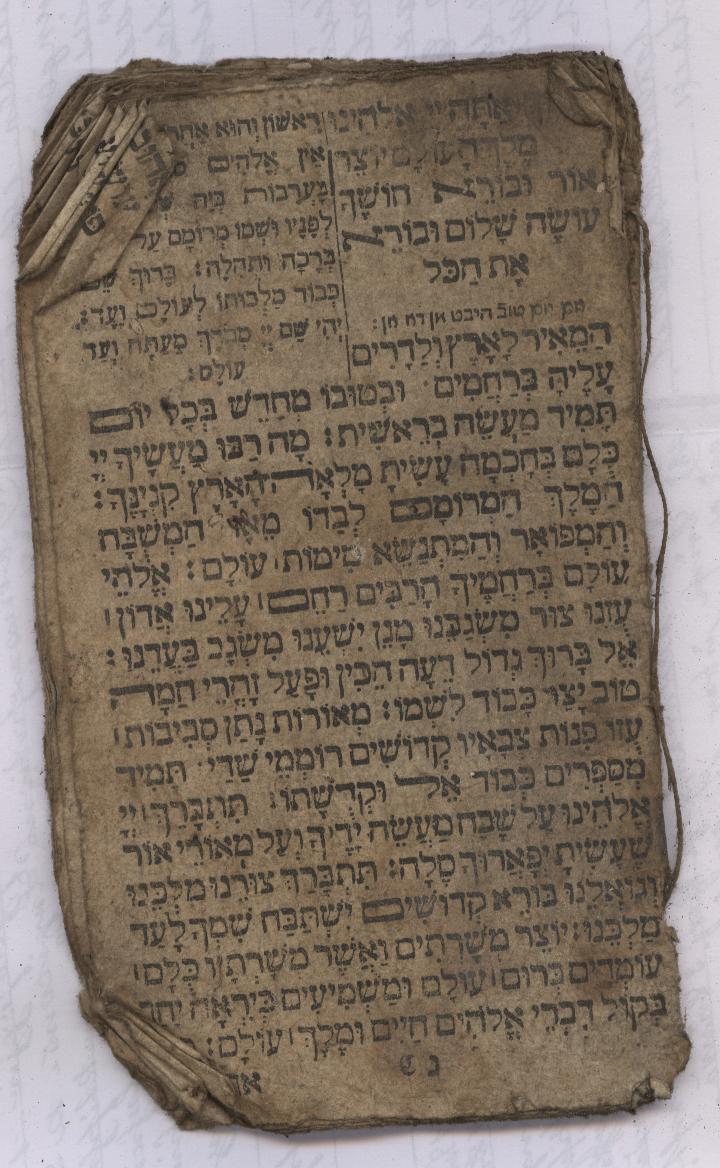 אַתָּה יי אֱלֹהֵינוּ
מֶלֶךְ הָעוֹלָם יוֹצֵר
אוֹר וּבוֹרֵא חוֹשֶׁךְ
עוֹשֶׂה שָׁלוֹם וּבוֹרֵא
אֶת הַכֹּל
רִאשׁוֹן וְהוּא אַחֲר
אֵין אֱלֹהִים
בָּעֲרָבוֹת בְּיָהּ
לְפָנָיו וּשְׁמוֹ מְרוֹמָם עַל
בְּרָכָה וּתְהִלָּה: בָּרוּךְ שֵׁם
כְּבוֹד מַלְכוּתוֹ לְעוֹלָם וָעֶד:
יְהִי שֵׁם יְיָ מְבֹרָךְ מֵעַתָּה וְעַד
עוֹלָם:
יום טוב היבט מן
הַמֵּאִיר לָאָרֶץ וְלַדָּרִים
עָלֶיהָ בְּרַחֲמִים וּבְטוּבוֹ מְחַדֵּשׁ בְּכָל יוֹם
תָּמִיד מַעֲשֵׂה בְרֵאשִׁית: מָה רַבּוּ מַעֲשֶׂיךָ יְיָ
כֻּלָּם בְּחָכְמָה עָשִׂיתָ מָלְאָה הָאָרֶץ קִנְיָנֶךָ:
הַמֶּלֶךְ הַמְרוֹמָם לְבַדּוֹ מֵאָז הַמְשֻׁבָּח
וְהַמְפוֹאָר וְהַמִּתְנַשֵּׂא מִימוֹת עוֹלָם: אֱלֹהֵי
עוֹלָם בְּרַחֲמֶיךָ הָרַבִּים רַחֵם עָלֵינוּ אֲדוֹן
עֻזֵּנוּ צוּר מִשְׂגַּבֵּנוּ מָגֵן יִשְׁעֵנוּ מִשְׂגָּב בַּעֲדֵנוּ:
אֵל בָּרוּךְ גְּדוֹל דֵּעָה הֵכִין וּפָעַל זָהֳרֵי חַמָּה
טוֹב יָצַר כָּבוֹד לִשְׁמוֹ: מְאוֹרוֹת נָתַן סְבִיבוֹת
עֻזּוֹ פִּנּוֹת צְבָאָיו קְדוֹשִׁים רוֹמְמֵי שַׁדַּי תָּמִיד
מְסַפְּרִים כְּבוֹד אֵל וּקְדֻשָּׁתוֹ: תִּתְבָּרֵךְ יְיָ
אֱלֹהֵינוּ עַל שֶׁבַח מַעֲשֵׂה יָדֶיךָ וְעַל מְאוֹרֵי אוֹר
שֶׁעָשִׂיתָ יְפָאֲרוּךָ סֶּלָה: תִּתְבָּרַךְ צוּרֵנוּ מַלְכֵּנוּ
וְגוֹאֲלֵנוּ בּוֹרֵא קְדוֹשִׁים יִשְׁתַּבַּח שִׁמְךָ לָעַד
מַלְכֵּנוּ: יוֹצֵר מְשָׁרְתִים וַאֲשֶׁר מְשָׁרְתָיו כֻּלָּם
עוֹמְדִים בְּרוּם עוֹלָם וּמַשְׁמִיעִים בְּיִרְאָה יַחַד
בְּקוֹל דִּבְרֵי אֱלֹהִים חַיִּים וּמֶלֶךְ עוֹלָם: